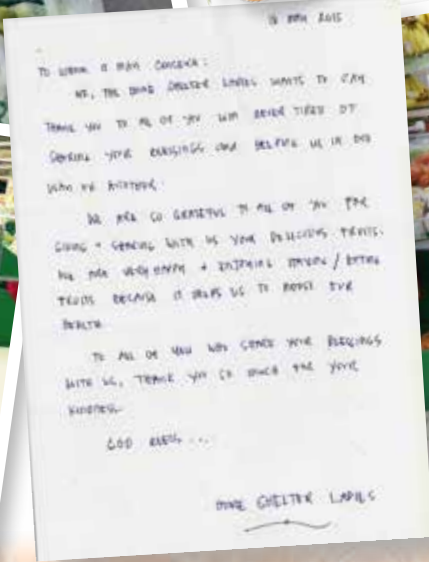 MAY 2015
TO WHOM IT MAY CONCERN:
WE, THE SHELTER LADIES WANTS TO SAY
THANK YOU TO ALL OF YOU WHO NEVER TIRED OF
SHARING YOUR BLESSINGS AND HELPING US IN ONE
WAY OR ANOTHER.
WE ARE SO GRATEFUL TO ALL OF YOU FOR
GIVING + SHARING WITH US YOUR DELICIOUS FRUITS.
WE ARE VERY HAPPY + ENJOYING / EATING
FRUITS BECAUSE IT HELPS US TO BOOST OUR
HEALTH.
TO ALL OF YOU WHO SHARE YOUR BLESSINGS
WITH US, THANK YOU SO MUCH FOR YOUR
KINDNESS.
GOD BLESS...
SHELTER LADIES